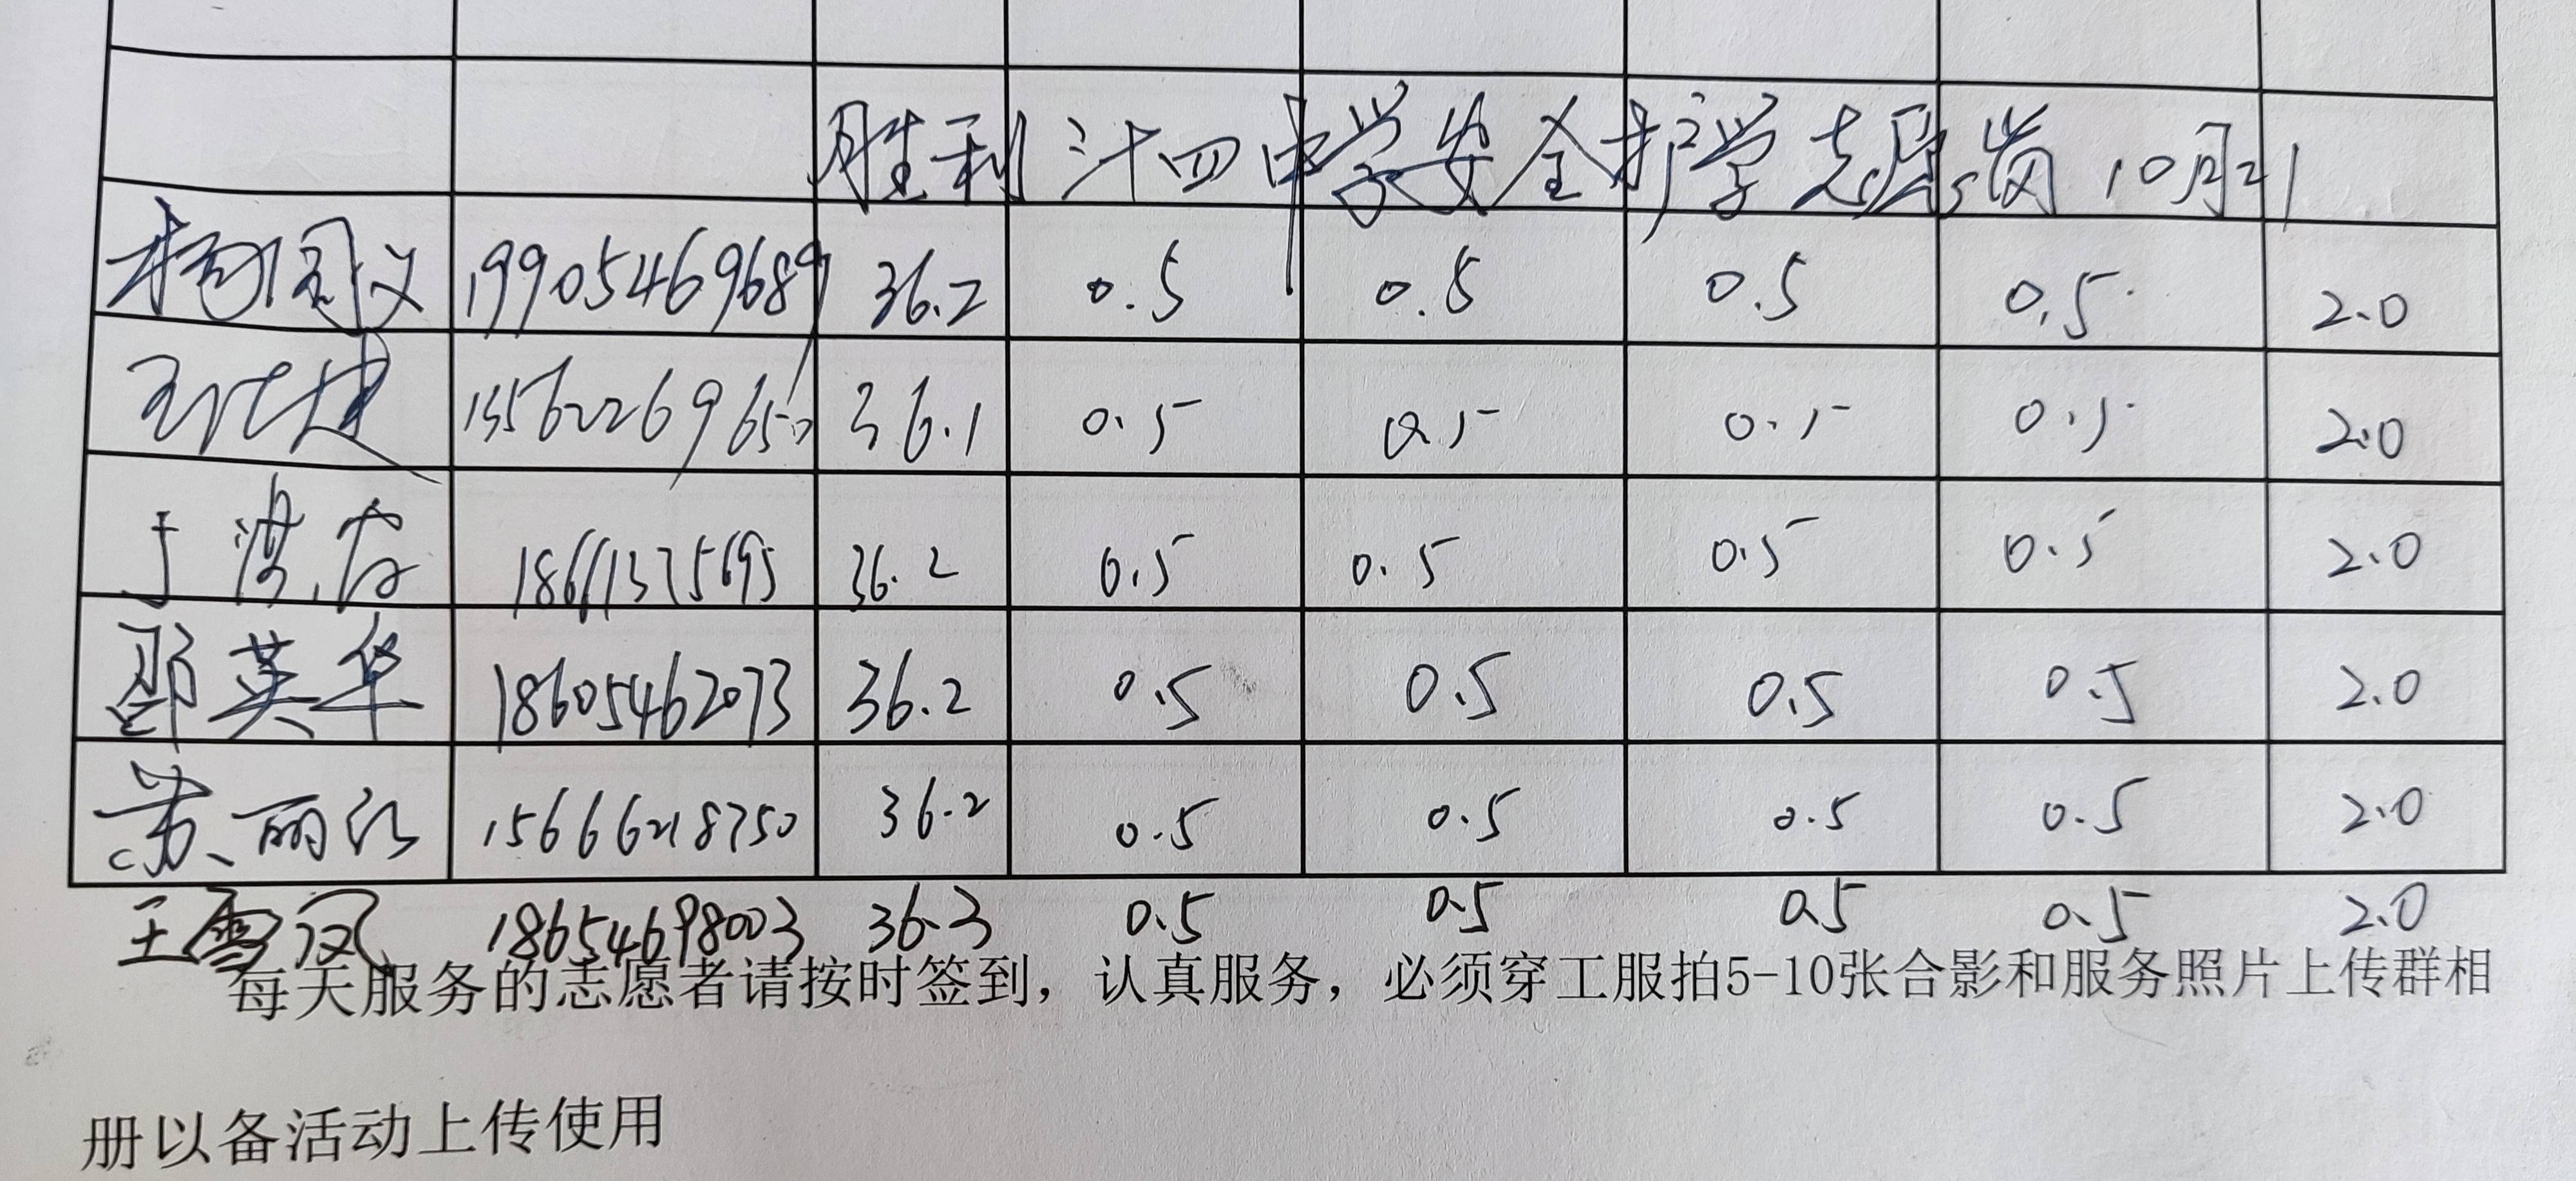 胜利三十四中学安全护学志愿岗 10月21
杨国义 19905469689 36.2 0.5 0.5 0.5 0.5 2.0
36.1 0.5 0.5 0.5 0.5 2.0
于 36.2 0.5 0.5 0.5 0.5 2.0
邵英华 18605462073 36.2 0.5 0.5 0.5 0.5 2.0
苏丽红 15666218750 36.2 0.5 0.5 0.5 0.5 2.0
王雪凤 18654698003 36.3 0.5 0.5 0.5 0.5 2.0
每天服务的志愿者请按时签到，认真服务，必须穿工服拍5-10张合影和服务照片上传群相
册以备活动上传使用